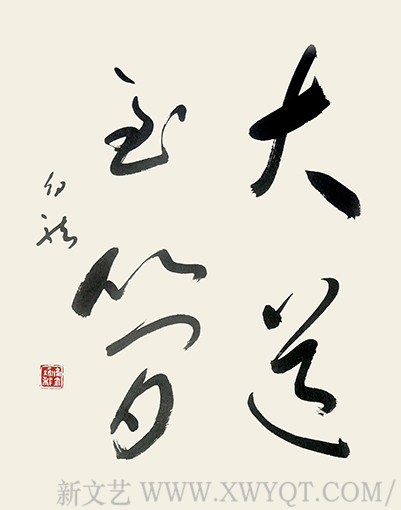 大道
至简
新文艺 WWW.XWYQT.COM/